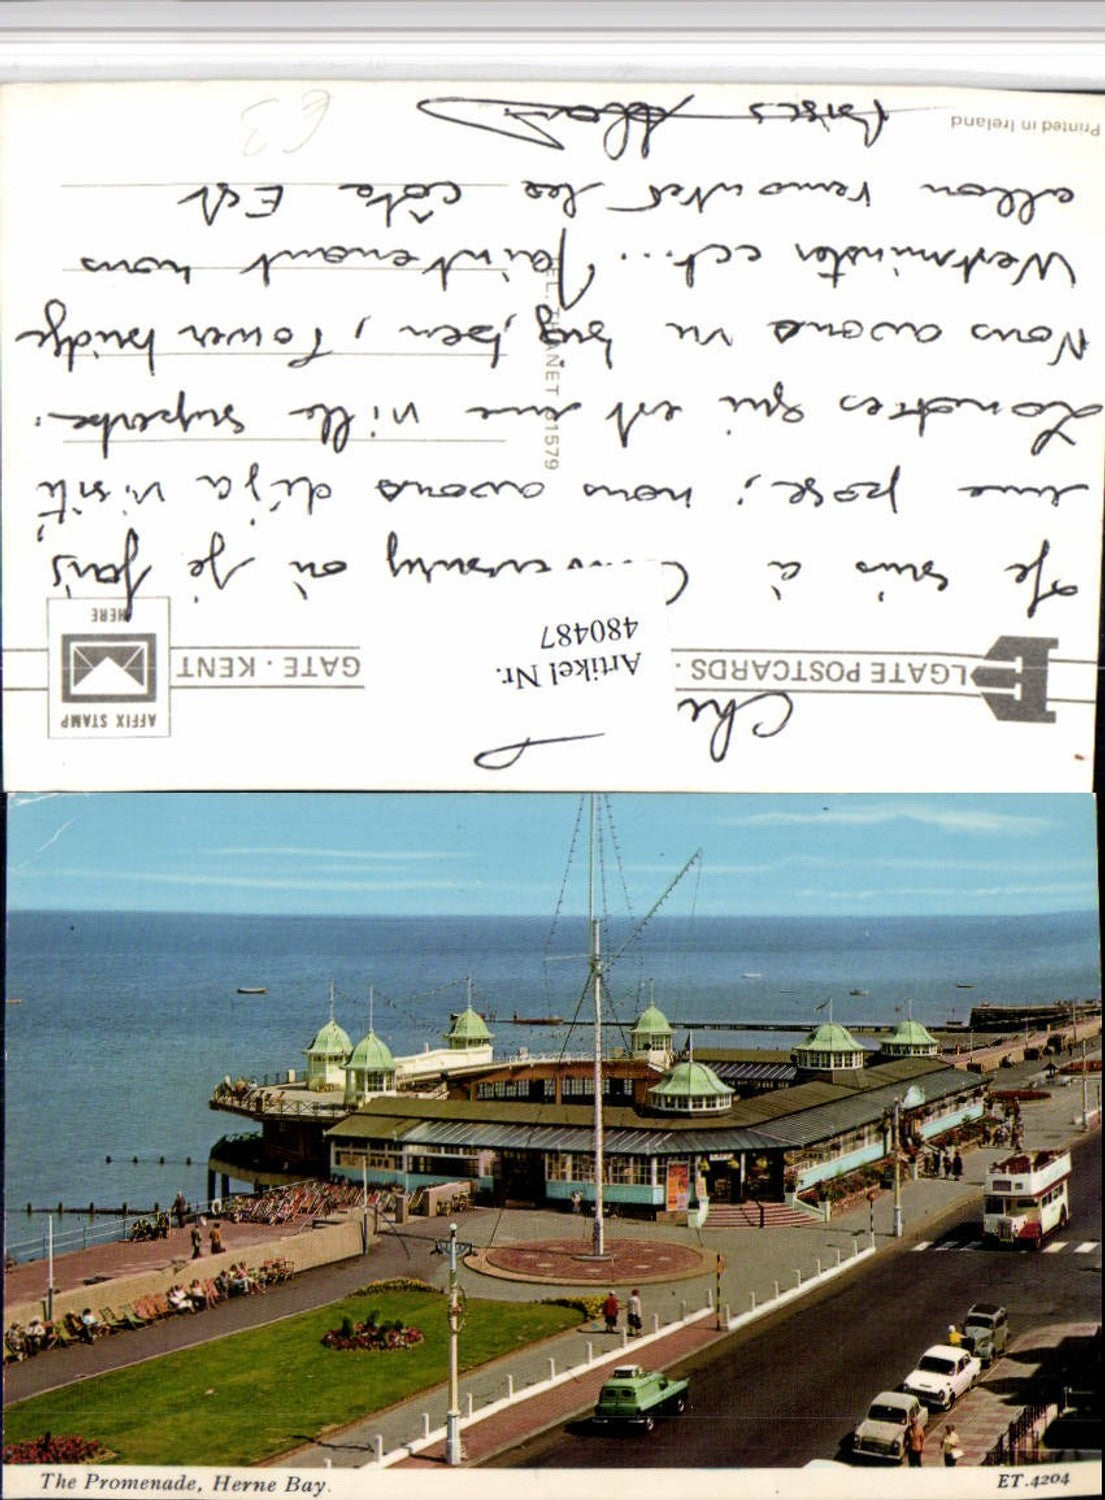 Chi
LGATE POSTCARDS ·
GATE · KENT
AFFIX STAMP
HERE
Artikel Nr.
480487
Je suis à où je fais
une pose; nous avons déjà visité
Londres qui est une ville superbe.
Nous avons vu big ben, Tower bridge
Westminster ect... Maintenant nous
allon remonter les côte Est
Bises
Printed in Ireland
EL. THANET 21579
£3
The Promenade, Herne Bay.
ET.4204